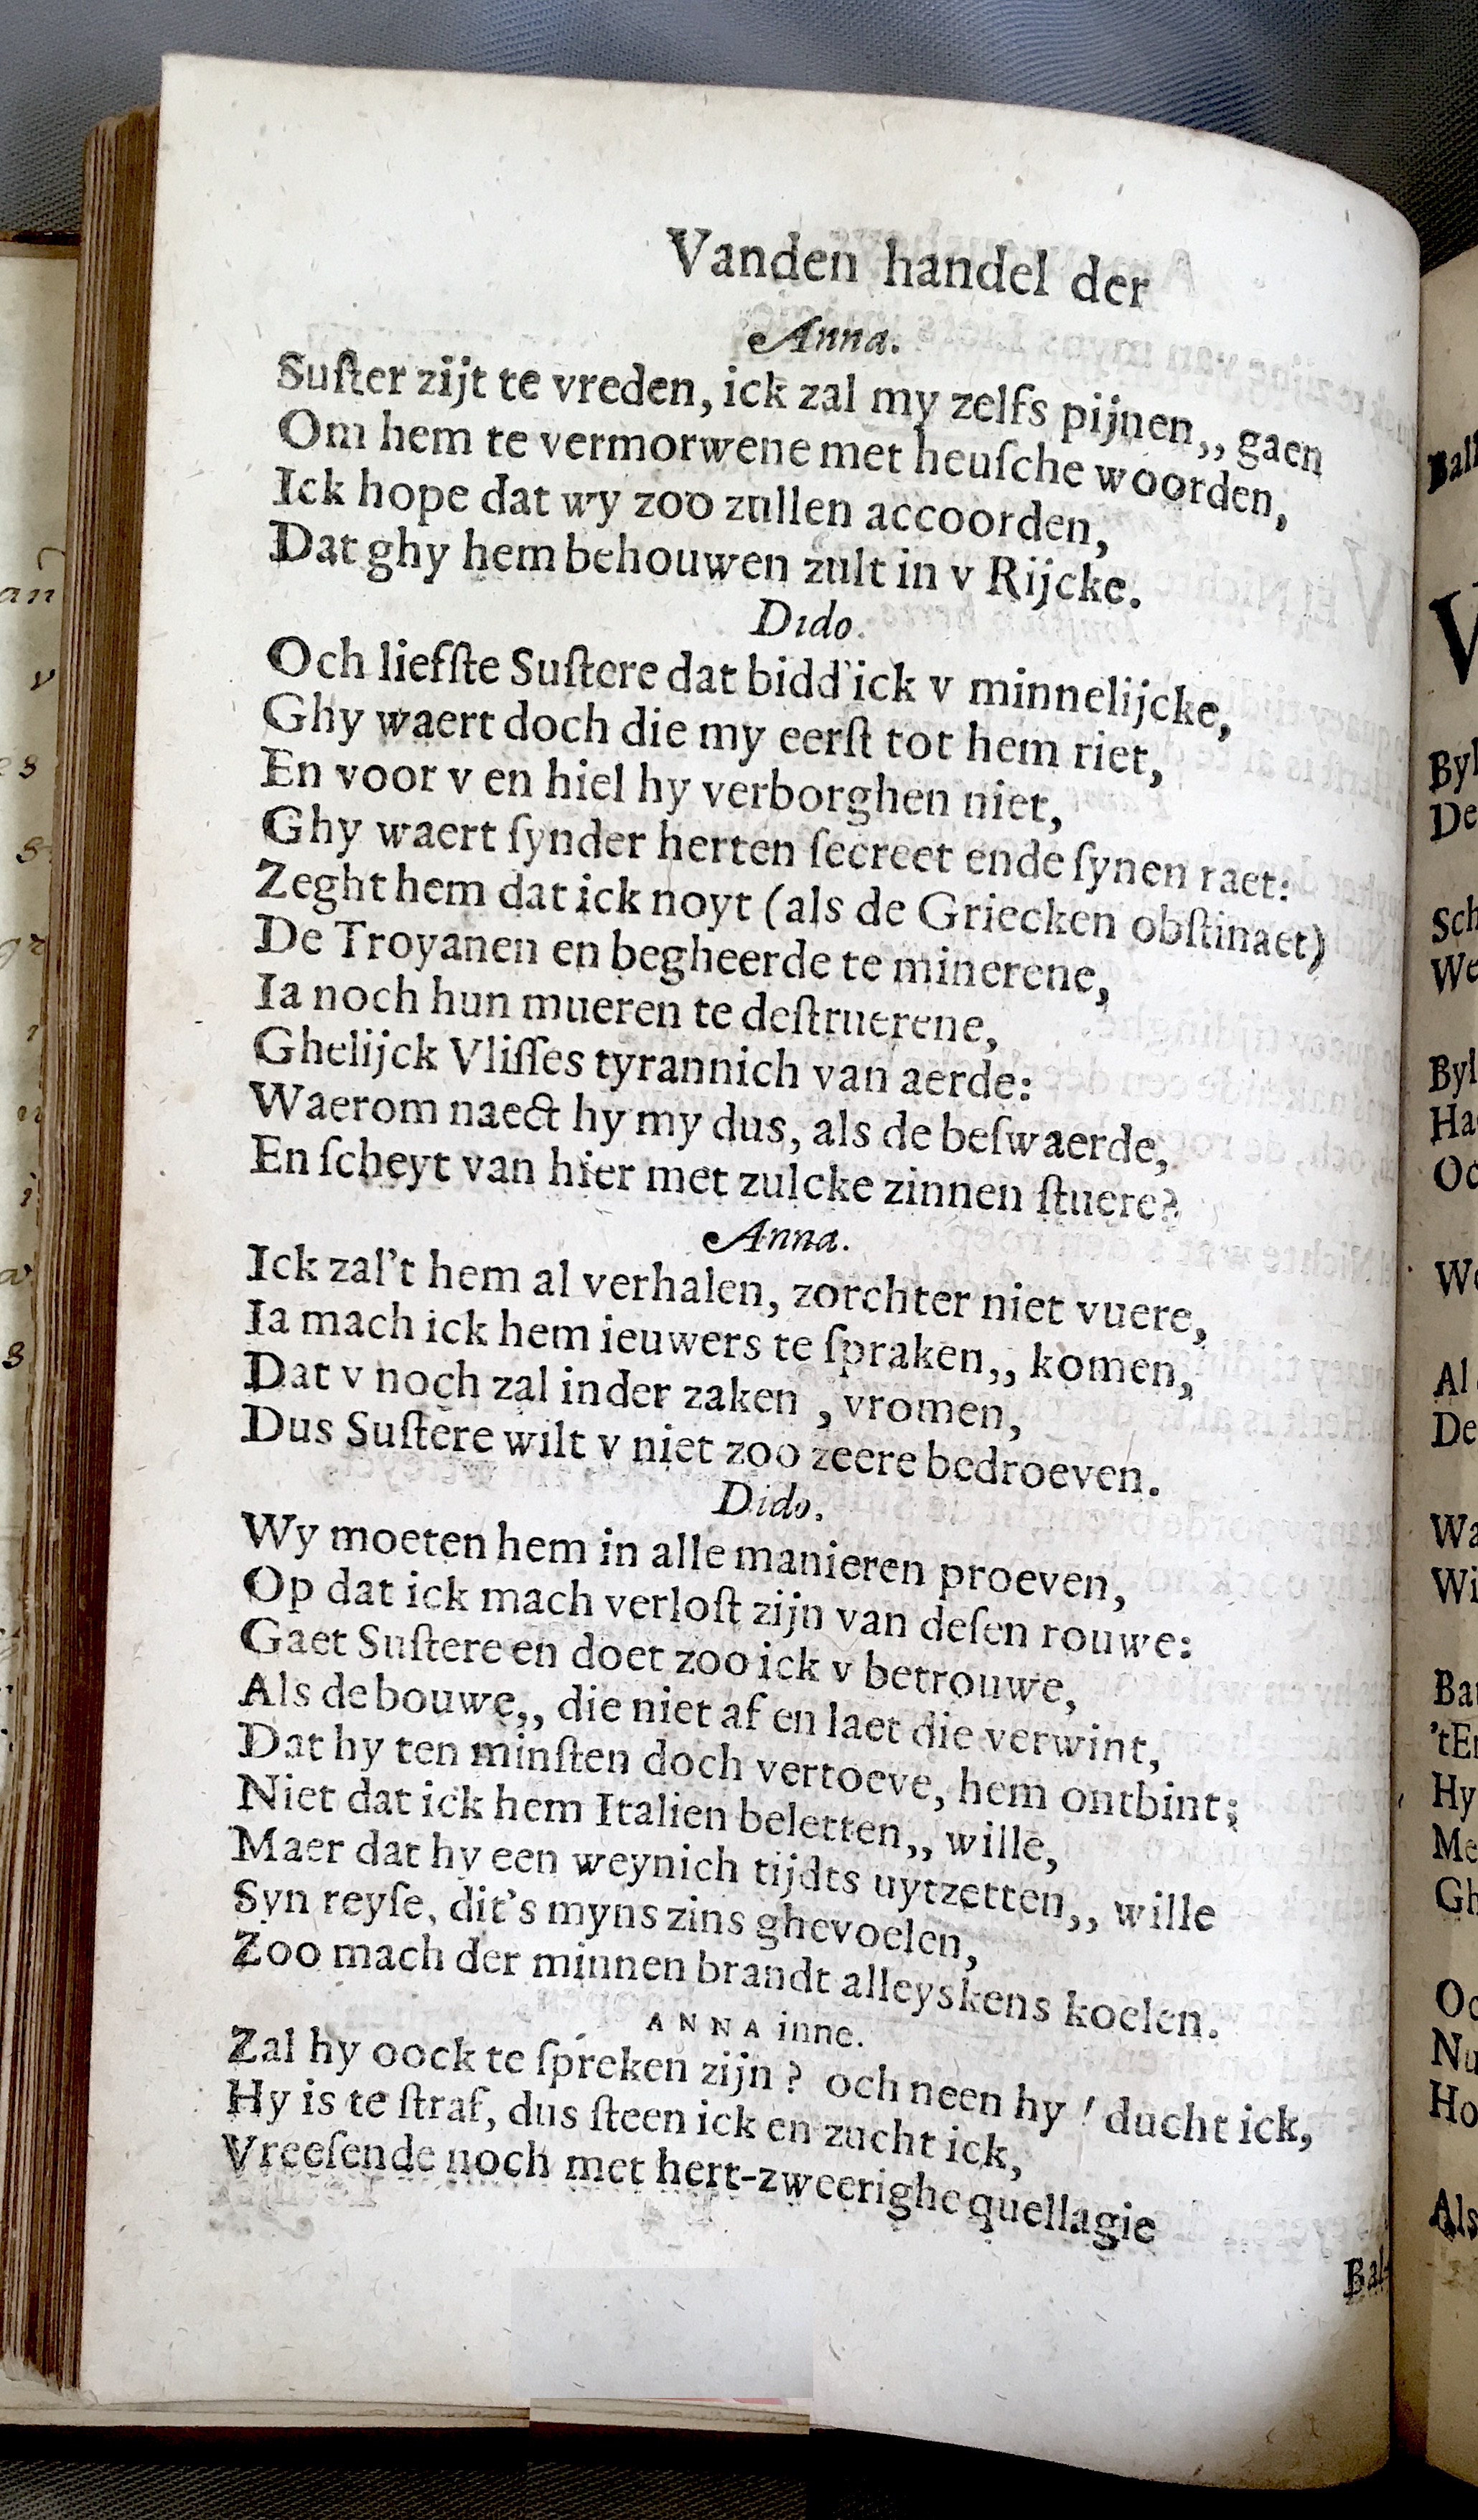 Vanden handel der
Anna.
Suſter zijt te vreden, ick zal my zelfs pijnen,, gaen
Om hem te vermorwene met heuſche woorden,
Ick hope dat wy zoo zullen accoorden,
Dat ghy hem behouwen zult in v Rijcke.
Dido.
Och liefſte Suſtere dat bidd'ick v minnelijcke,
Ghy waert doch die my eerſt tot hem riet,
En voor v en hiel hy verborghen niet,
Ghy waert ſynder herten ſecreet ende ſynen raet:
Zeght hem dat ick noyt (als de Griecken obſtinaet)
De Troyanen en begheerde te minerene,
Ia noch hun mueren te deſtruerene,
Ghelijck Vliſſes tyrannich van aerde:
Waerom naect hy my dus, als de beſwaerde,
En ſcheyt van hier met zulcke zinnen ſtuere?
Anna.
Ick zal't hem al verhalen, zorchter niet vuere,
Ia mach ick hem ieuwers te ſpraken,, komen,
Dat v noch zal inder zaken , vromen,
Dus Suſtere wilt v niet zoo zeere bedroeven.
Dido.
Wy moeten hem in alle manieren proeven,
Op dat ick mach verloſt zijn van deſen rouwe:
Gaet Suſtere en doet zoo ick v betrouwe,
Als de bouwe,, die niet af en laet die verwint,
Dat hy ten minſten doch vertoeve, hem ontbint;
Niet dat ick hem Italien beletten,, wille,
Maer dat hy een weynich tijdts uytzetten,, wille
Syn reyſe, dit's myns zins ghevoelen,
Zoo mach der minnen brandt alleyskens koelen.
ANNA inne.
Zal hy oock te ſpreken zijn? och neen hy! ducht ick,
Hy is te ſtraf, dus ſteen ick en zucht ick,
Vreeſende noch met hert-zweerighe quellagie
Bal-
an
v
es
s
gr
i
s
Ball
V
Byl
De
Sch
We
Byl
Ha
Oc
We
Al
De
Wa
Wi
Ba
'tE
Hy
Me
Gh
Oc
Nu
Ho
Als